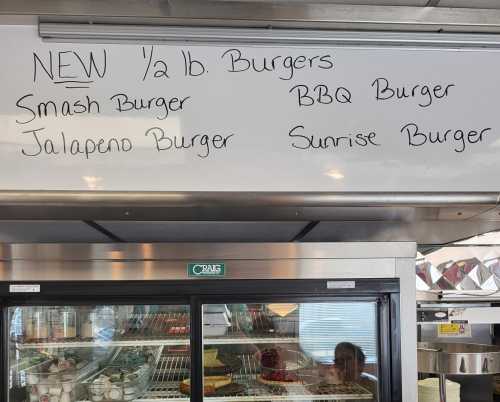 NEW 1/2 lb. Burgers
Smash Burger
BBQ Burger
Jalapeno Burger
Sunrise Burger
CRAIG